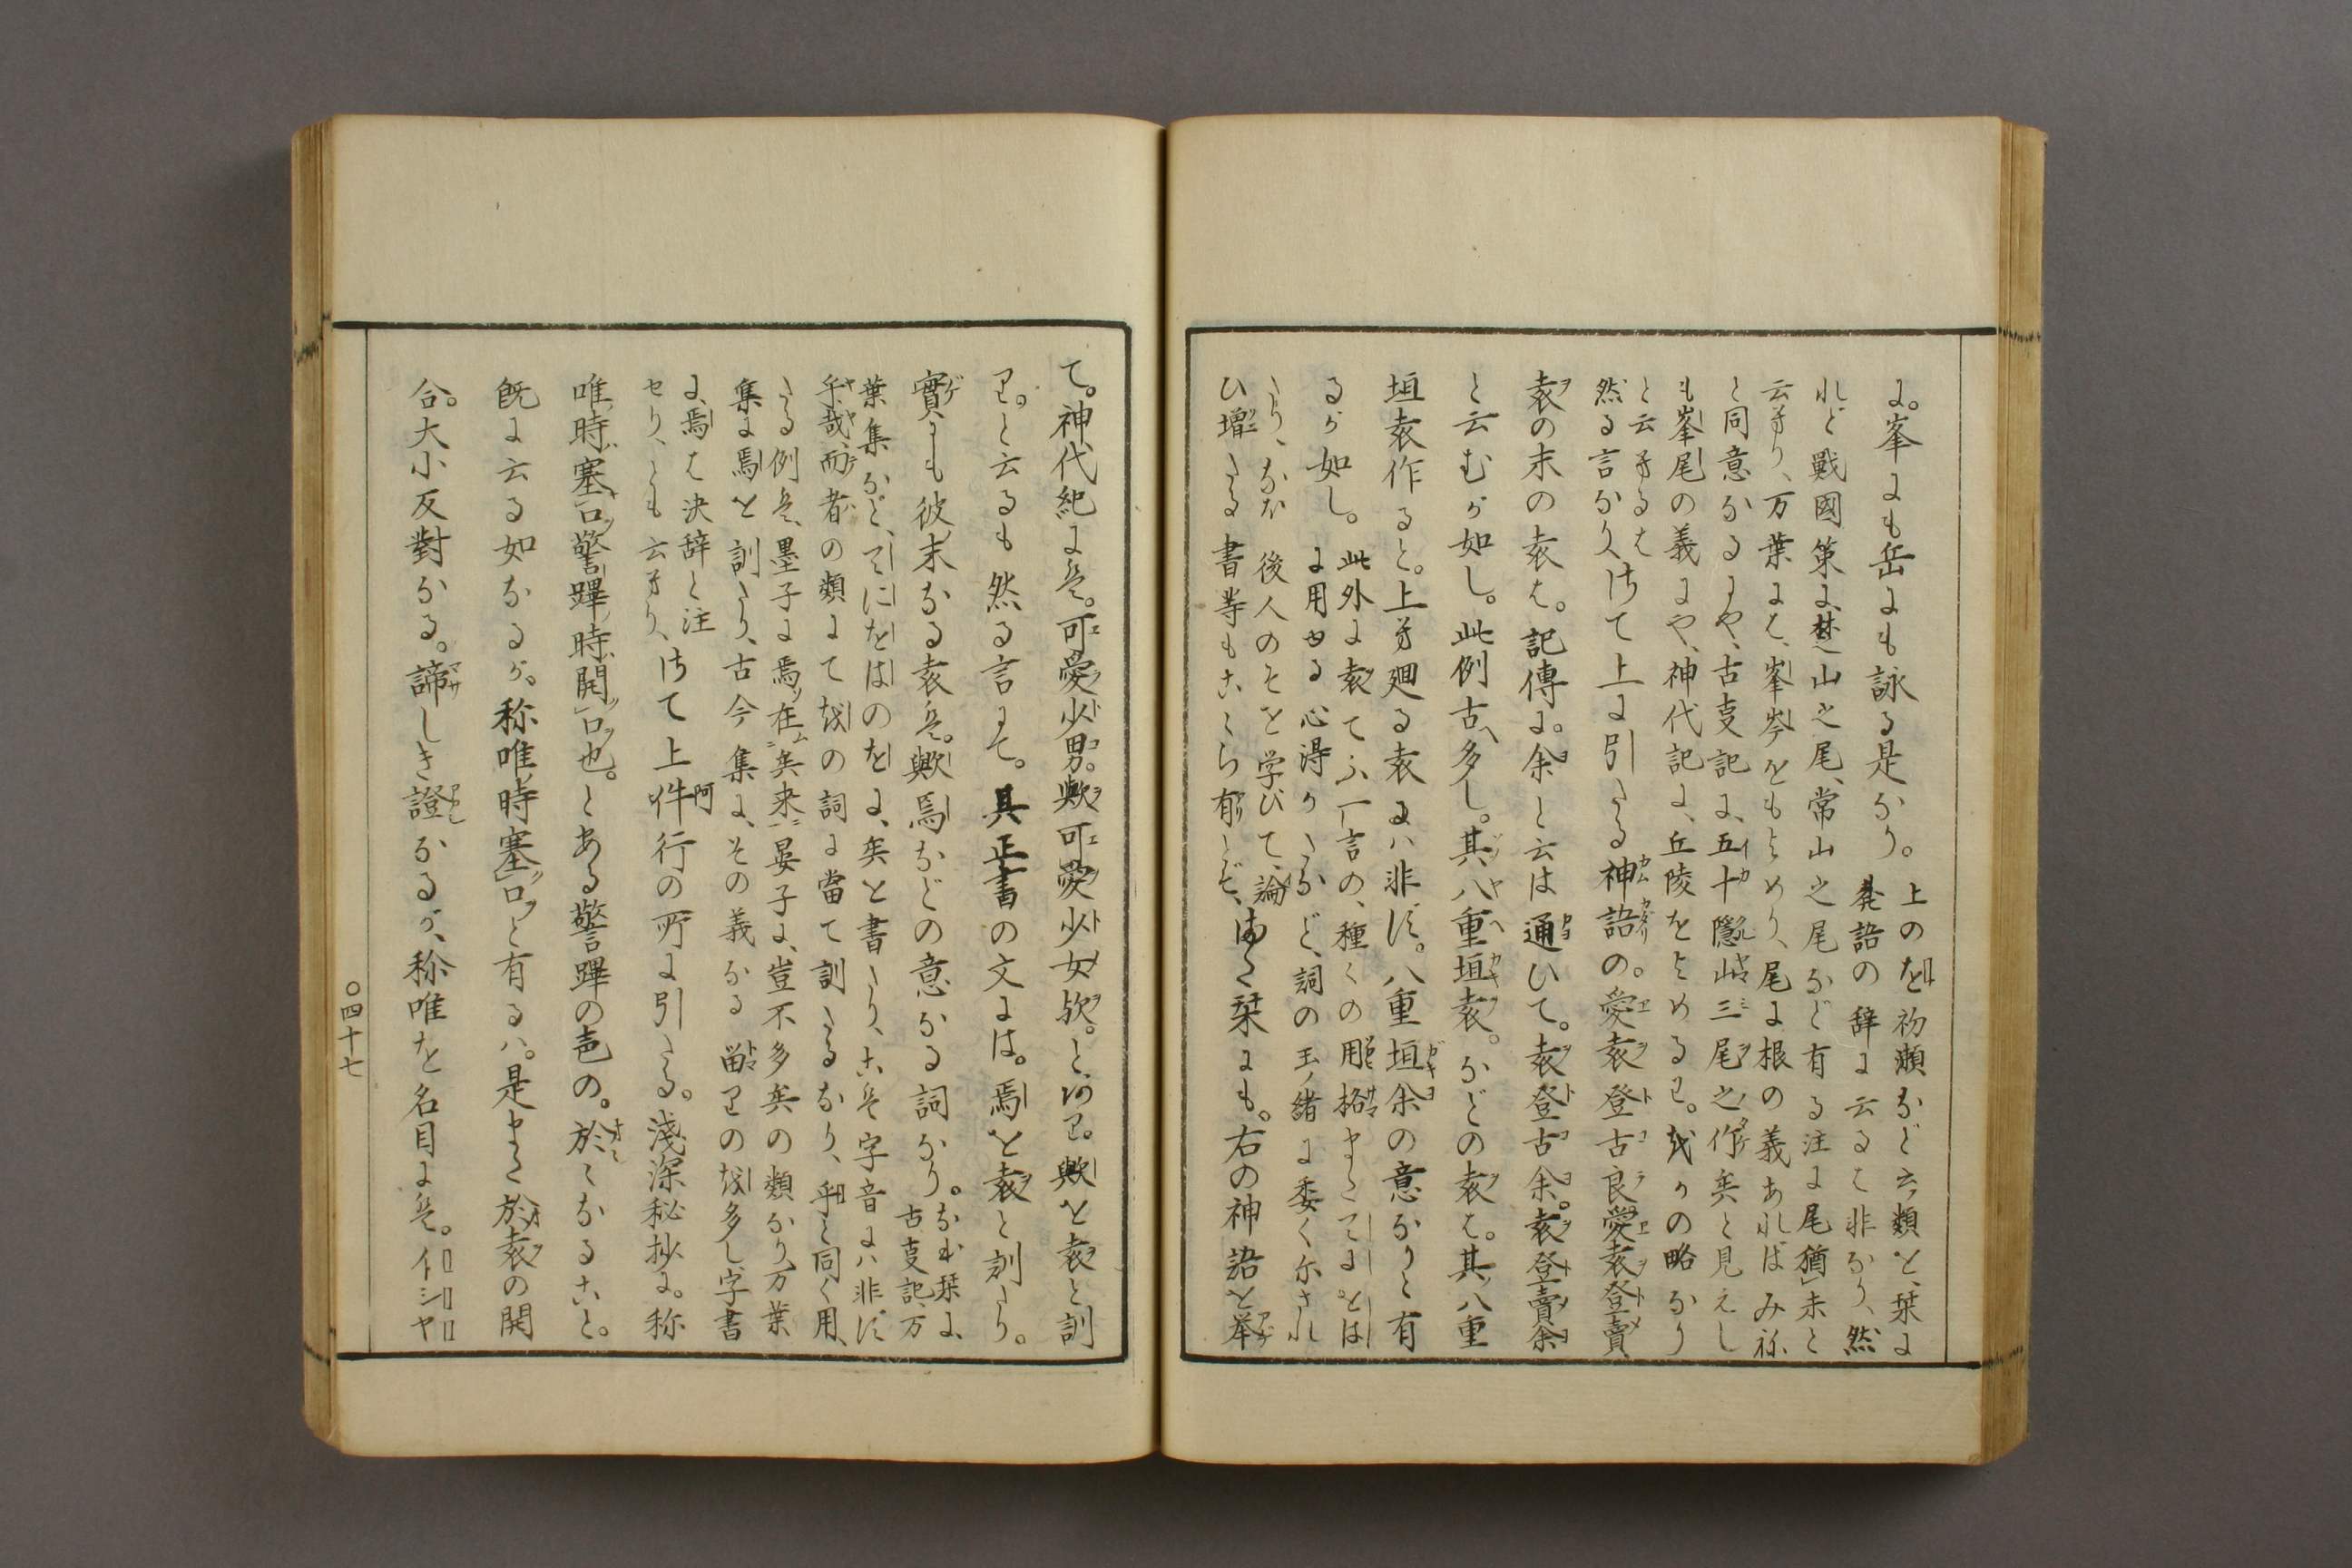 に。峯にも岳にも詠る是なり。
上のを初瀬など云類を、栞に
発語の辞に云るは非なり、然
れど戦國策に、楚山之尾、常山之尾など有る注に尾猶末と
云り、万葉には、峯岑をもよめり、尾に根の義あればみね
と同意なるにや、古事記に、五十隠山三尾之作矣と見えし
も峯尾の義にや、神代記に、丘陵をよめるは。越の略なり
と云るは
然る言なり、
さて上に引たる神語の。愛袁登古良愛袁登賣
袁の末の袁は。記傳に。余と云は通ひて。袁登古余。袁登賣余
と云むが如し。此例古へ多し。其八重垣袁。などの袁は。其八重
垣袁作ると。上廻る袁には非ず。八重垣余の意なりと有
るが如し。
此外に袁てふ一言の、種々の用格またてにをは
に用る心得かたなど、詞の玉緒に委く尓され
たり、なほ後人のそを学びて、論
ひ増たる書等もこゝら有とぞ、
また栞にも。右の神語を挙
て。神代紀には。可愛少男歟可愛少女歟。と、歟を袁と訓
り。と云るも然る言にて。其正書の文には。焉を袁と訓り。
實にも彼末なる袁は。歟焉などの意なる詞なり。
なほ栞に、
古事記、万
葉集など、てにをはのをに、矣と書たり、こは字音には非ず
乎、哉、而、者の類にて越の詞に當て訓たるなり、乎と同く用、
たる例は、墨子に焉在矣来、晏子に、豈不多矣の類なり、万葉
集に焉を訓り、古今集に、その義なる留りの越多し、字書
に、焉は決辞と注
セり、とも云り、
さて上件阿行の所に引たる。浅深秘抄に。称
唯時塞口警蹕時開口也。とある警蹕の声の。於々なること。
既に云る如なるが。称唯時塞口と有るハ。是また於袁の開
合。大小反對なる。諦しき證なるが、称唯を名目には。イシヤ
〇四十七